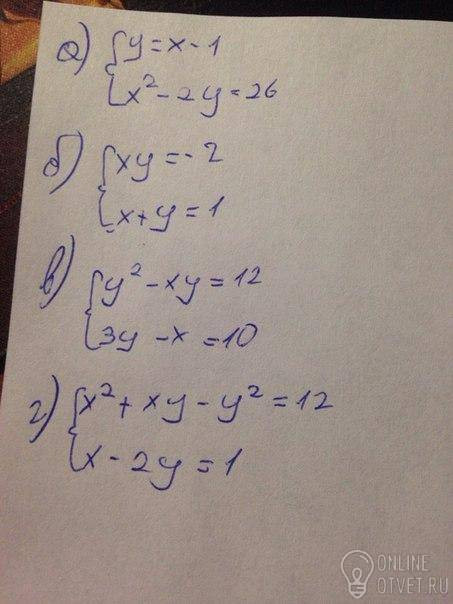 а) { y = x - 1
x² - 2y = 26
б) { xy = -2
x + y = 1
в) { y² - xy = 12
3y - x = 10
г) { x² + xy - y² = 12
x - 2y = 1
ONLINE
OTVET.RU